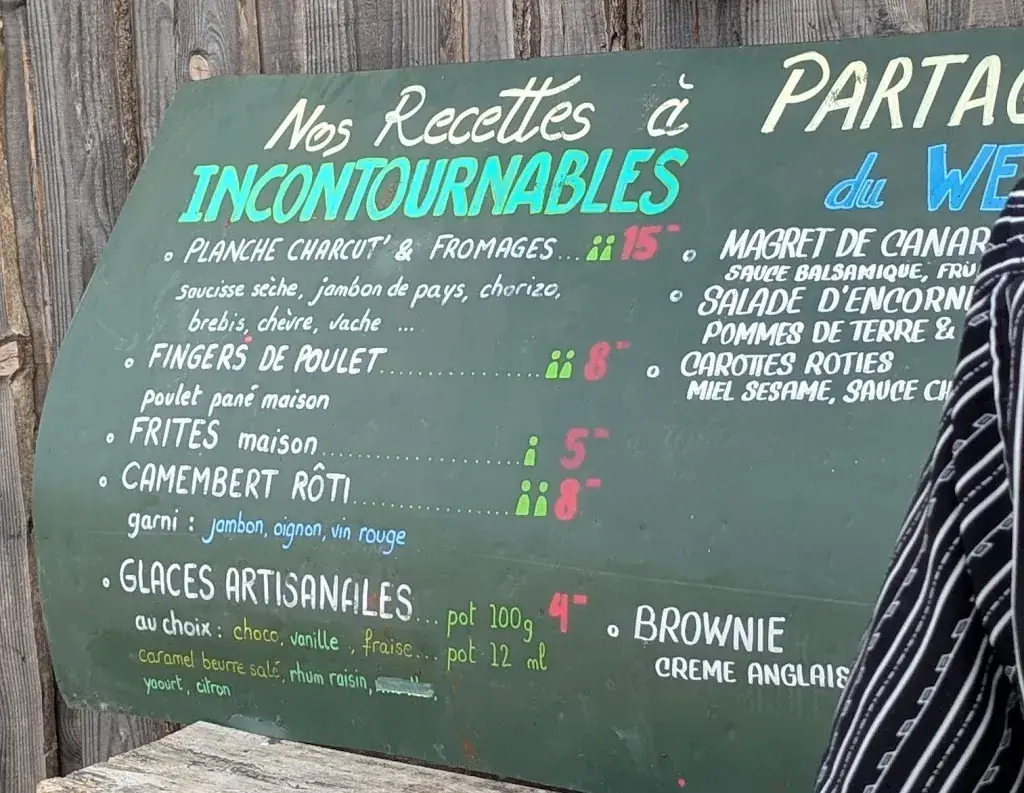 Nos Recettes à PARTAG
INCONTOURNABLES
• PLANCHE CHARCUT' & FROMAGES... 15-
saucisse sèche, jambon de pays, chorizo,
brebis, chèvre, vache ...
• FINGERS DE POULET.................... 8-
poulet pané maison
• FRITES maison....................... 5-
• CAMEMBERT RÔTI.................... 8-
garni : jambon, oignon, vin rouge
• GLACES ARTISANALES... pot 100g 4-
au choix : choco, vanille, fraise... pot 12 ml
caramel beurre salé, rhum raisin,
yaourt, citron
du WE
• MAGRET DE CANAR
SAUCE BALSAMIQUE, FRU
• SALADE D'ENCORN
POMMES DE TERRE &
• CAROTTES ROTIES
MIEL SESAME, SAUCE CH
• BROWNIE
CREME ANGLAIS